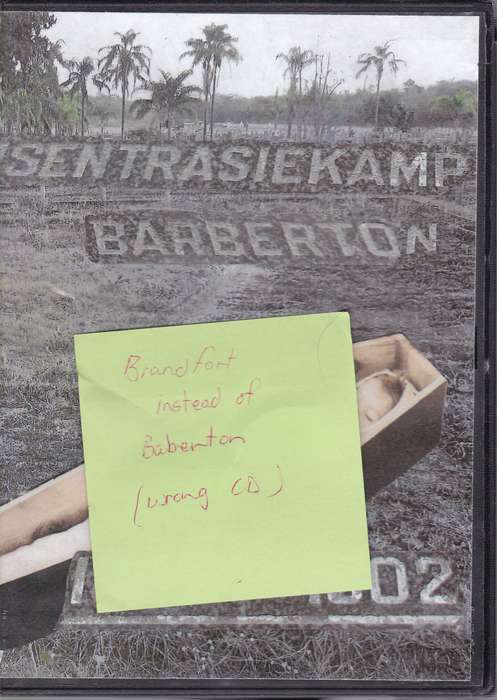 SENTRASIEKAMP
BARBERTON
Brandfort
instead of
Baberton
(wrong CD)
902